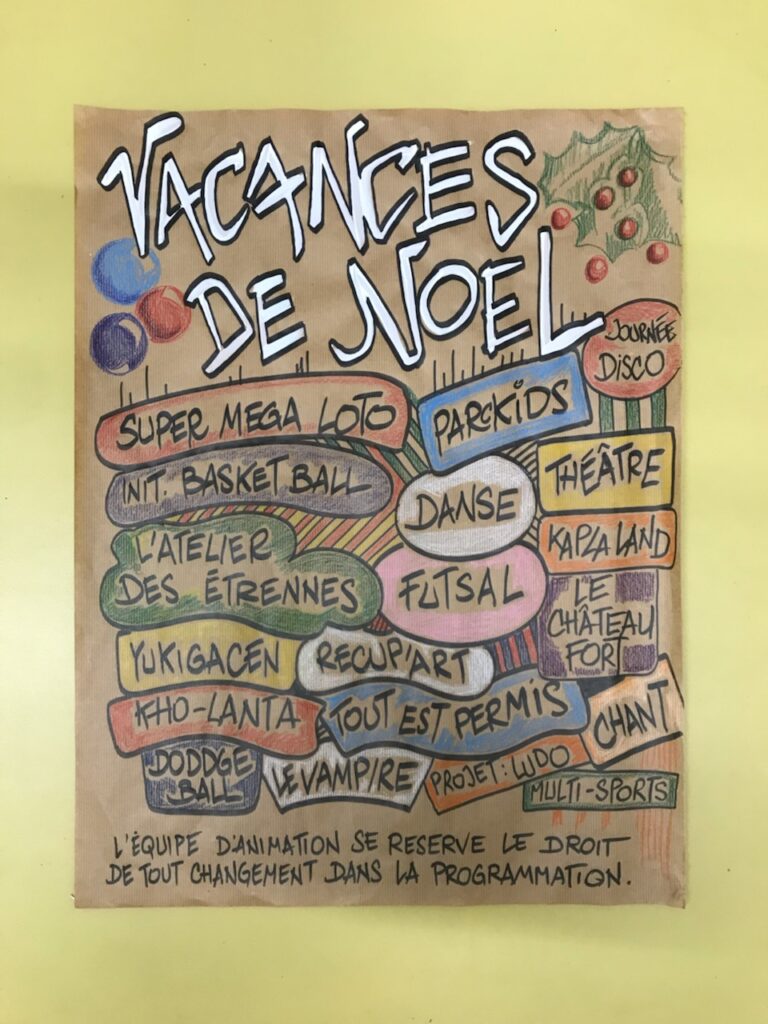 VACANCES
DE NOEL
JOURNÉE
DISCO
SUPER MEGA LOTO
PARCKIDS
INIT. BASKET BALL
DANSE
THÉÂTRE
L'ATELIER
DES ÉTRENNES
FUTSAL
KAPLA LAND
LE
CHÂTEAU
FORT
YUKIGACEN
RECUP'ART
KHO-LANTA
TOUT EST PERMIS
CHANT
DODDGE
BALL
LE VAMPIRE
PROJET: LUDO
MULTI-SPORTS
L'ÉQUIPE D'ANIMATION SE RESERVE LE DROIT
DE TOUT CHANGEMENT DANS LA PROGRAMMATION.